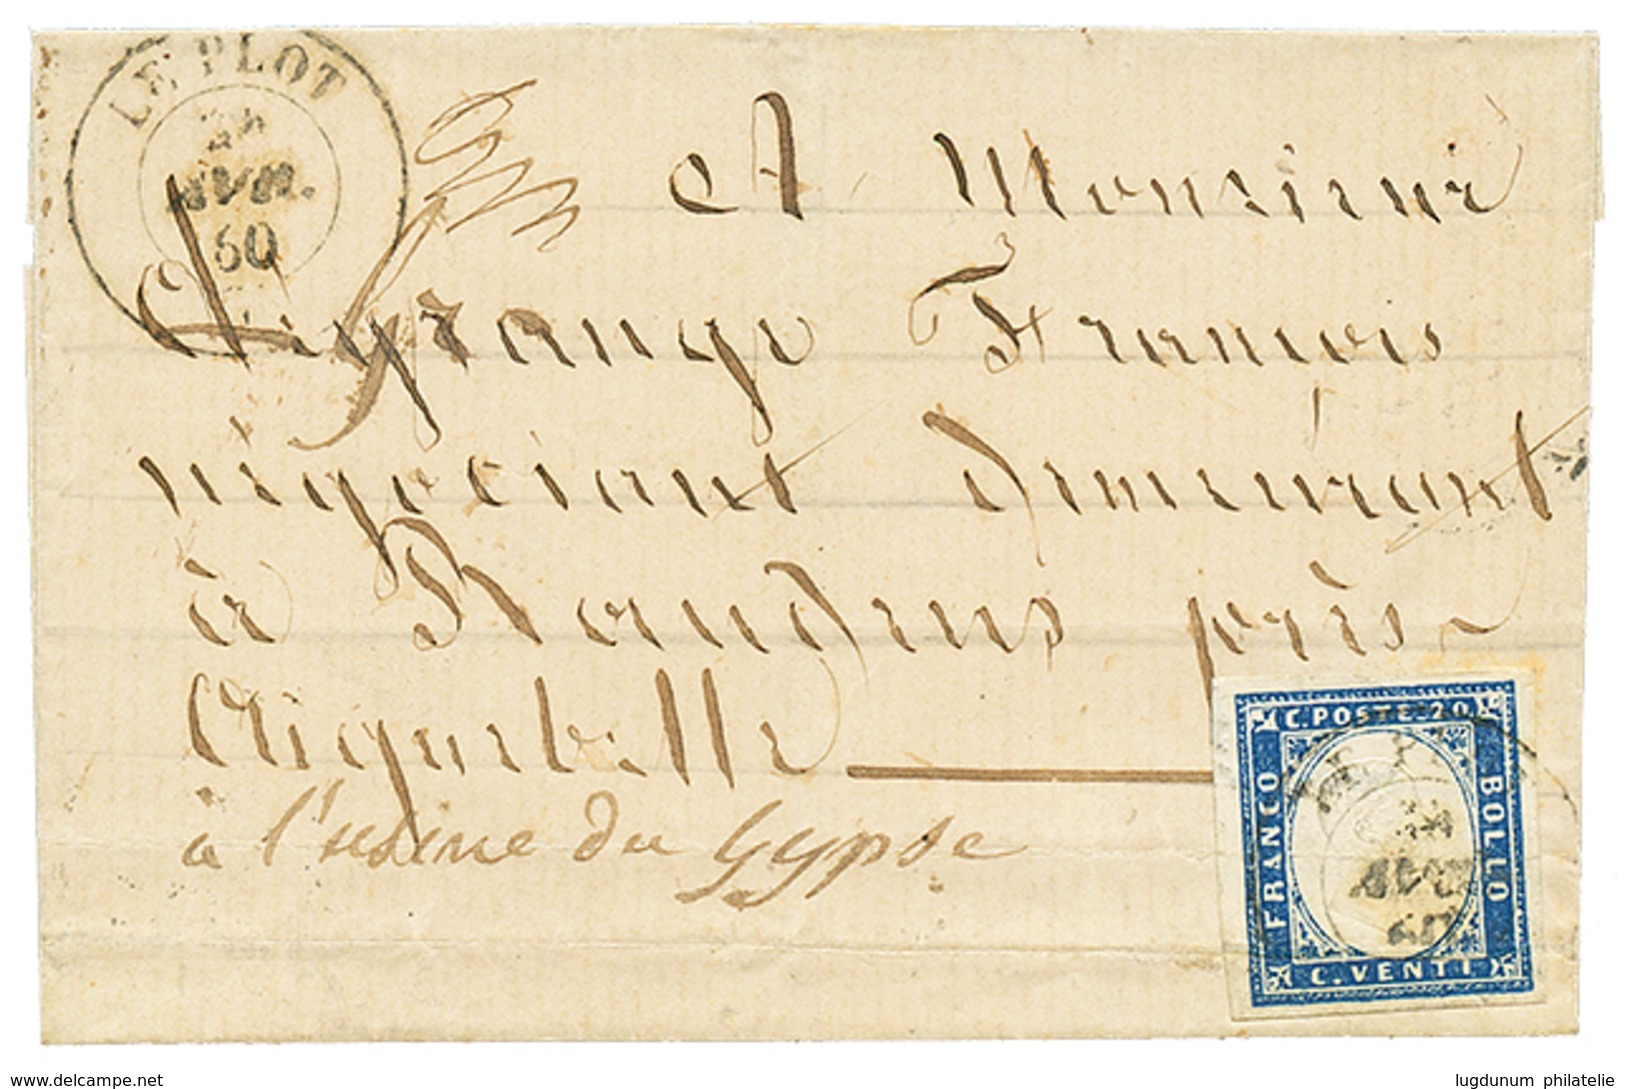 LE PLOT
24
AVR.
60
A Monsieur
Ligrange François
négociant demeurant
à Randens près
Aiguebelle
à l'usine du Gypse
C. POSTE 20
FRANCO
BOLLO
C. VENTI
AVR
60
www.delcampe.net
lugdunum philatelie